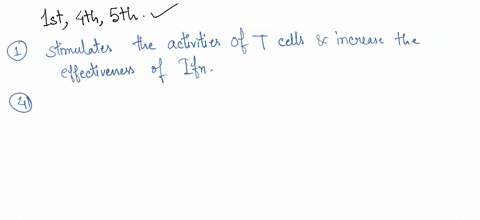 1st, 4th, 5th.
① Stimulates the activities of T cells & increase the
effectiveness of Ifn.
④